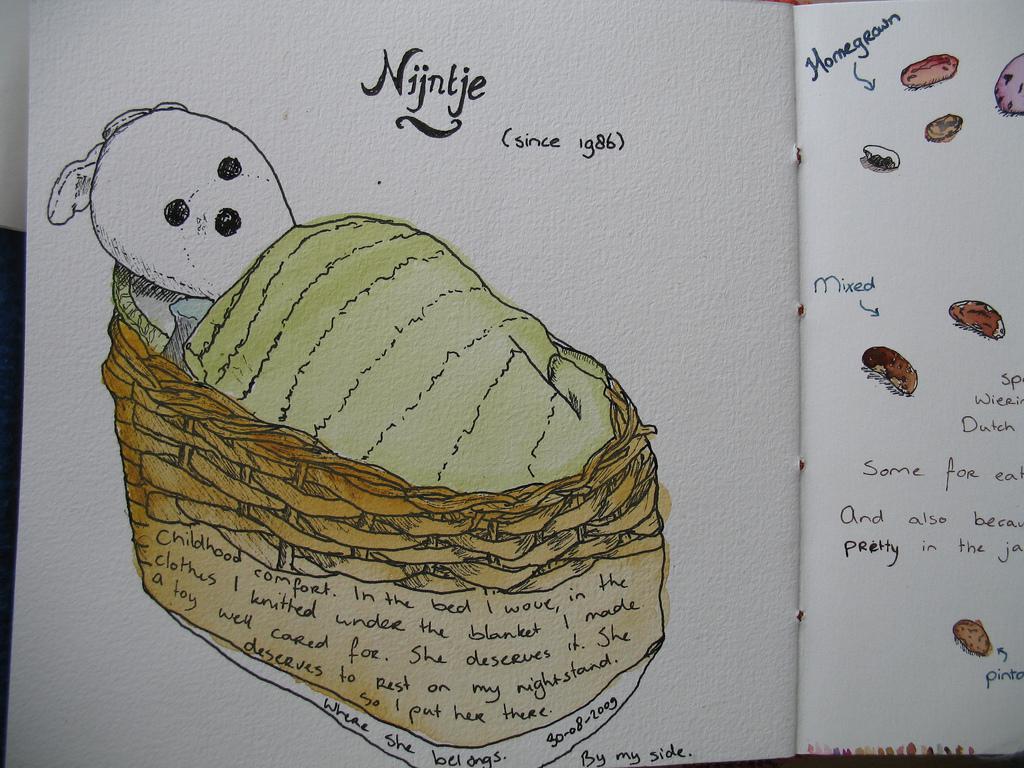 Nijntje
(since 1986)
Childhood comfort. In the bed I wove, in the
clothes I knitted under the blanket I made
a toy well cared for. She deserves it. She
deserves to rest on my nightstand.
So I put her there.
Where she belongs.
30-08-2009
By my side.
Homegrown
Mixed
Dutch
Some for eat
And also becau
pretty in the ja
pinto